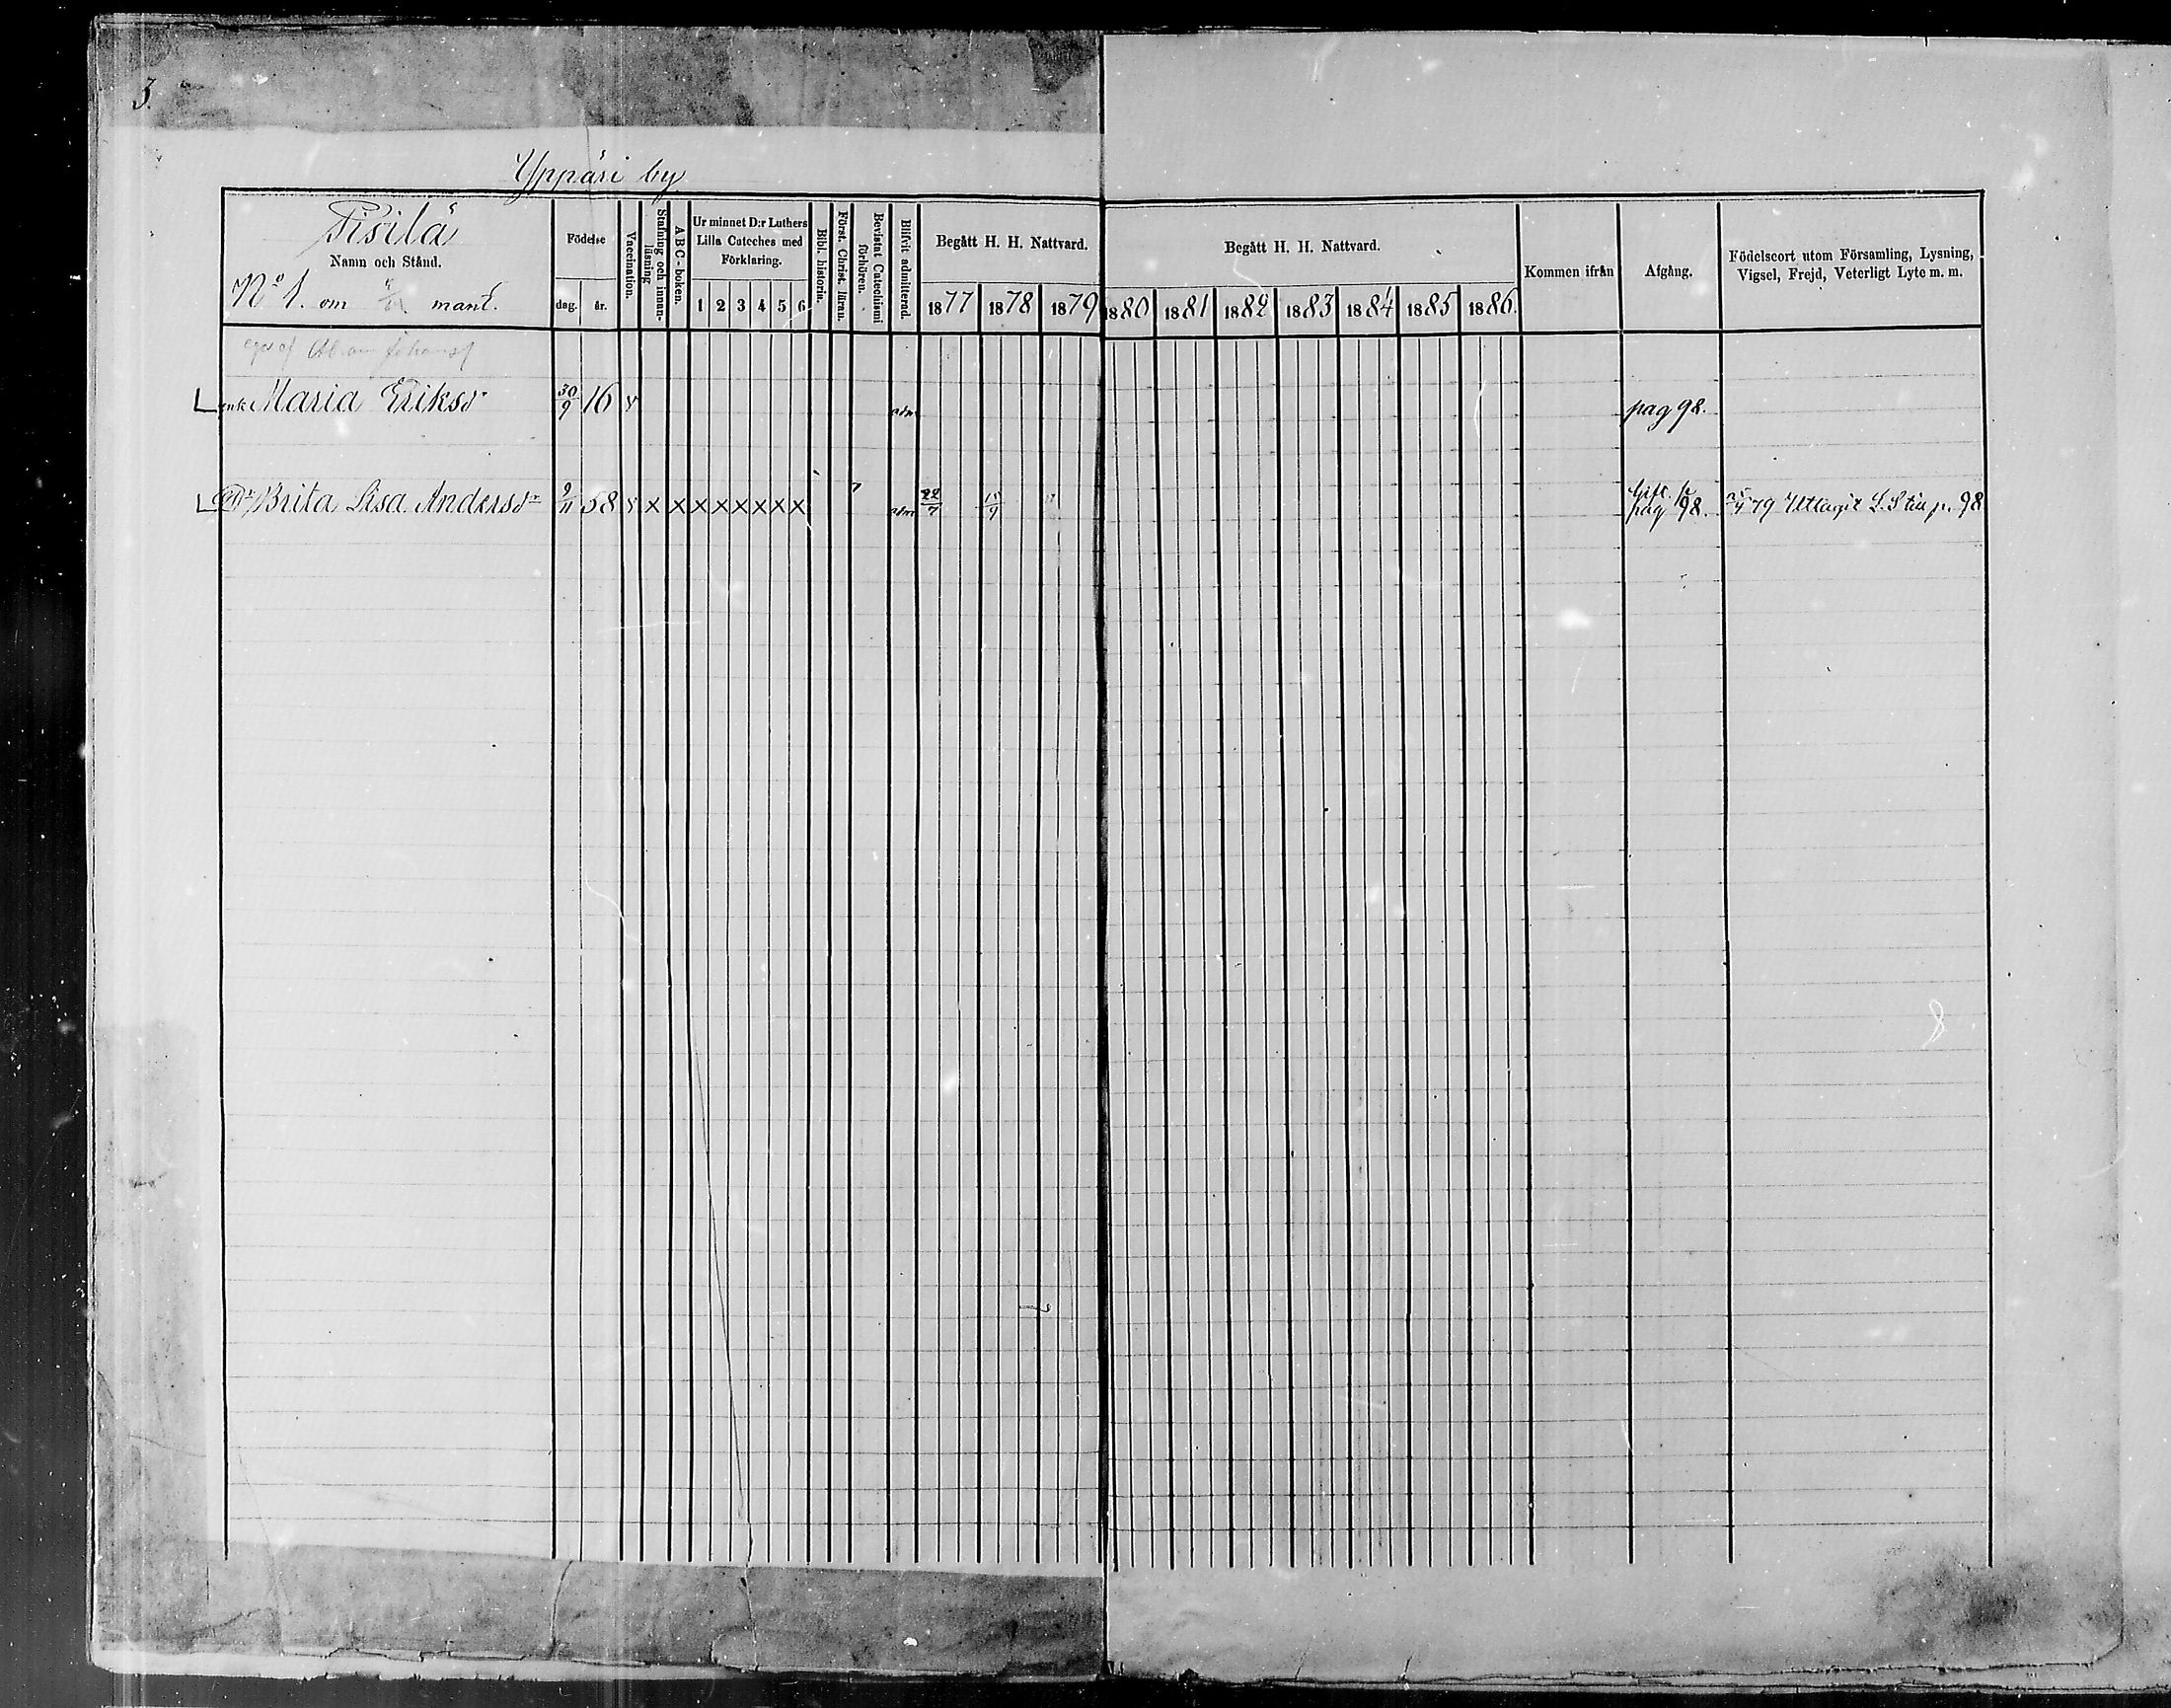 3.
Yppäri by
Pisilä
Namn och Stånd.
No 1. om mant.
Födelse
dag. år.
Vaccination.
Stafning och innanläsning
A B C - boken.
Ur minnet D:r Luthers Lilla Cateches med Förklaring.
1 2 3 4 5 6
Bibl. historia.
Först. Christ. läran.
Bevistat Catechismi förhören.
Blifvit admitterad.
Begått H. H. Nattvard.
1877 1878 1879
Begått H. H. Nattvard.
1880 1881 1882 1883 1884 1885 1886.
Kommen ifrån
Afgång.
Födelseort utom Församling, Lysning, Vigsel, Frejd, Veterligt Lyte m. m.
enk Maria Eriksdr 30/9 16 v adm pag 98.
Brita Lisa Andersdr 9/11 58 v x x x x x x x x adm 22/7 15/9 gift pag 98. 79 Uttagit L.S till p. 98